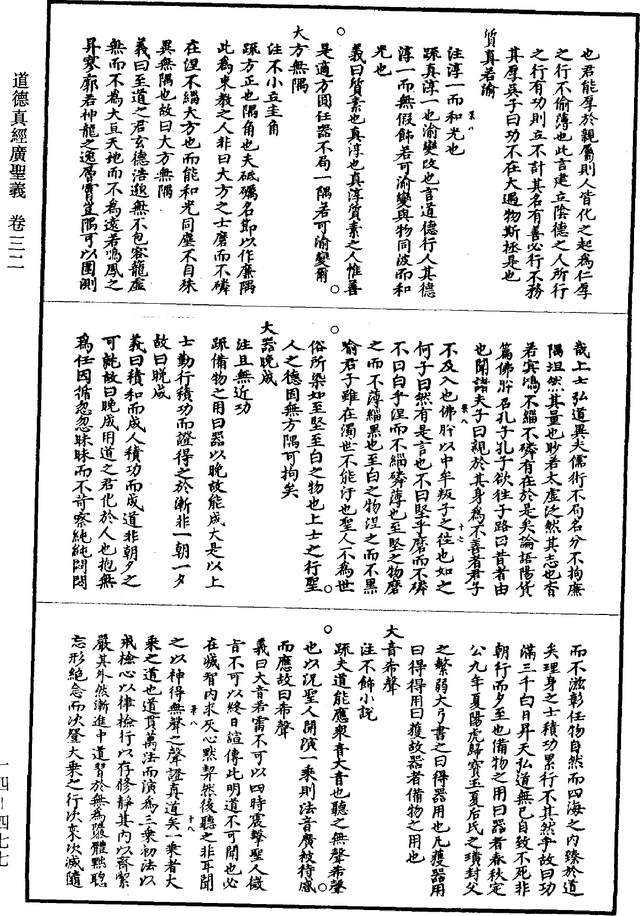 道德真經廣聖義　卷三二
一四—四七七
也君能厚於親屬則人皆化之起為仁厚
之行不偷薄也此言建立陰德之人所行
之行有功則立不計其名有善必行不務
其厚吳子曰功不在大遇物斯拯是也
質真若渝
注淳一而和光也
疏真淳一也渝變改也言道德行人其德
淳一而無假飾若可渝變與物同波而和
光也
義曰質素也真淳也真淳質素之人惟善
是適方圓任器不局一隅若可渝變爾
大方無隅
注不小立圭角
疏方正也隅角也夫砥礪名節以作廉隅
此為束教之人非曰大方之士磨而不磷
在涅不緇大方也而能和光同塵不自殊
異無隅也故曰大方無隅
義曰至道之君玄德浩邈無不包容龍虛
無而不為大亘天地而不為遠若鳴鳳之
昇寥廓若神龍之逸層霄豈隅可以圍測
哉上士弘道異夫儒術不局名分不拘廉
隅坦然其量也眇若太虛泛然其志也杳
若冥鴻不緇不磷有在於是矣論語陽貨
篇佛肸名孔子孔子欲往子路曰昔者由
也聞諸夫子曰親於其身為不善者君子
不及入也佛肸以中牟叛子之往也如之
何子曰然有是言也不曰堅乎磨而不磷
不曰白乎涅而不緇磷薄也至堅之物磨
之而不薄緇黑也至白之物涅之而不黑
喻君子雖在濁世不能汙也聖人不為世
俗所染如至堅至白之物也上士之行聖
人之德固無方隅可拘矣
大器晚成
注且無近功
疏備物之用曰器以晚故能成大是以上
士勤行積功而證得之於漸非一朝一夕
故曰晚成
義曰積和而成人積功而成道非朝夕之
可能故曰晚成用道之君化於人也抱無
為任因循忽忽昧昧而不苛察純純悶悶
而不滋彰任物自然而四海之內臻於道
矣理身之士積功累行不其然乎故曰功
滿三千白日昇天弘道無已自致不死非
朝行而夕至也備物之用曰器者春秋定
公九年夏陽虎歸寶玉夏后氏之璜封父
之繁弱大弓書之曰得器用也凡獲器用
曰得得用曰獲故器者備物之用也
大音希聲
注不飾小說
疏夫道能應眾音大音也聽之無聲希聲
也以況聖人開演一乘則法音廣被待感
而應故曰希聲
義曰大音若雷不可以四時震擊聖人微
言不可以終日諠傳此明道不可聞也必
在減智內求灰心默契然後聽之非耳聞
之以神得無聲之聲證真道矣一乘者大
乘之道也道貫萬法而演為三乘初法以
戒檢心以律檢行以存修靜其內以齋潔
嚴其外然漸進中道習於無為隳體黜聰
忘形絕念而次登大乘之行次來次滅隨